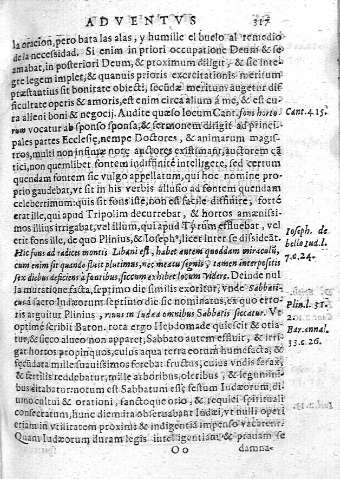 ADVENTVS 317
la oracion, pero bata las alas, y humille el buelo al remedio
de la necesidad. Si enim in priori occupatione Deum & se
amabat, in posteriori Deum, & proximum diligit, & sic inte-
gre legem implet, & quanuis prioris exercitationis meritum
præstantius sit bonitate obiecti, secũdæ meritum augetur dif
ficultate operis & amoris, est enim circa alium á me, & est cu
ra alieni boni & negocij. Audite quæso locum Cant. fons horto
rum vocatur ab sponso sponsa, & sermonem dirigit ad princi-
pales partes Ecclesię, nempe Doctores, & animarum magis-
tros, multi non infimæ notę auctores existimant, auctorem cã
tici, non quemlibet fontem indiffinitè intelligere, sed certum
quendam fontem sic vulgo appellatum, qui hoc nomine pro-
prio gaudebat, vt sit in his verbis allusio ad fontem quendam
celeberrimum: quis sit fons iste, non est facile diffinire, fortè
erat ille, qui apud Tripolim decurrebat, & hortos amænissi-
mos illius irrigabat, vel illum, qui apud Tyrum effluebat, vel
erit fons ille, de quo Plinius, & Iosephº, licet inter se dissideãt.
Hic fons ad radices montis Libani est, habet autem quoddam miraculũ,
cum enim sit quando fluit plurimus, nec meatu segnis, tamen interpositis
sex diebus deficiens à fontibus, siccum exhibet locum videre. Deinde nul
la mutatione facta, septimo die similis exoritur, vnde Sabbati-
cum sacro Iudæorum septimo die sic nominatus, ex quo erro-
ris arguitur Plinius, riuus in Iudæa omnibus Sabbatis siccatur. Vt
optimè scribit Baron. tota ergo Hebdomade quiescit & otia-
tur, & sicco alueo non apparet, Sabbato autem effluit, & irri-
gat hortos propinquos, cuius aqua terra eorum humefacta, &
fecũdata mille suauissimos ferebat fructus, cuius vndis ferax,
& fertilis reddebatur, mille arboribus, oleribus, & legumini-
bus ditabatur: notum est Sabbatum esse festum Iudæorum, di-
uino cultui & orationi, sanctoque otio, & requiei spirituali
consecratum, hunc diem ita obseruabant Iudæi, vt nulli operi
etiam in vtilitatem proximi & indigentis impenso vacarent.
Quam Iudæorum duram legis intelligentiam & prauam se
Oo damna-
Cant. 4. 15.
Ioseph. de
bello Iud. l.
7. c. 24.
Plin. l. 31.
2.
Bar. annal.
33. c. 26.